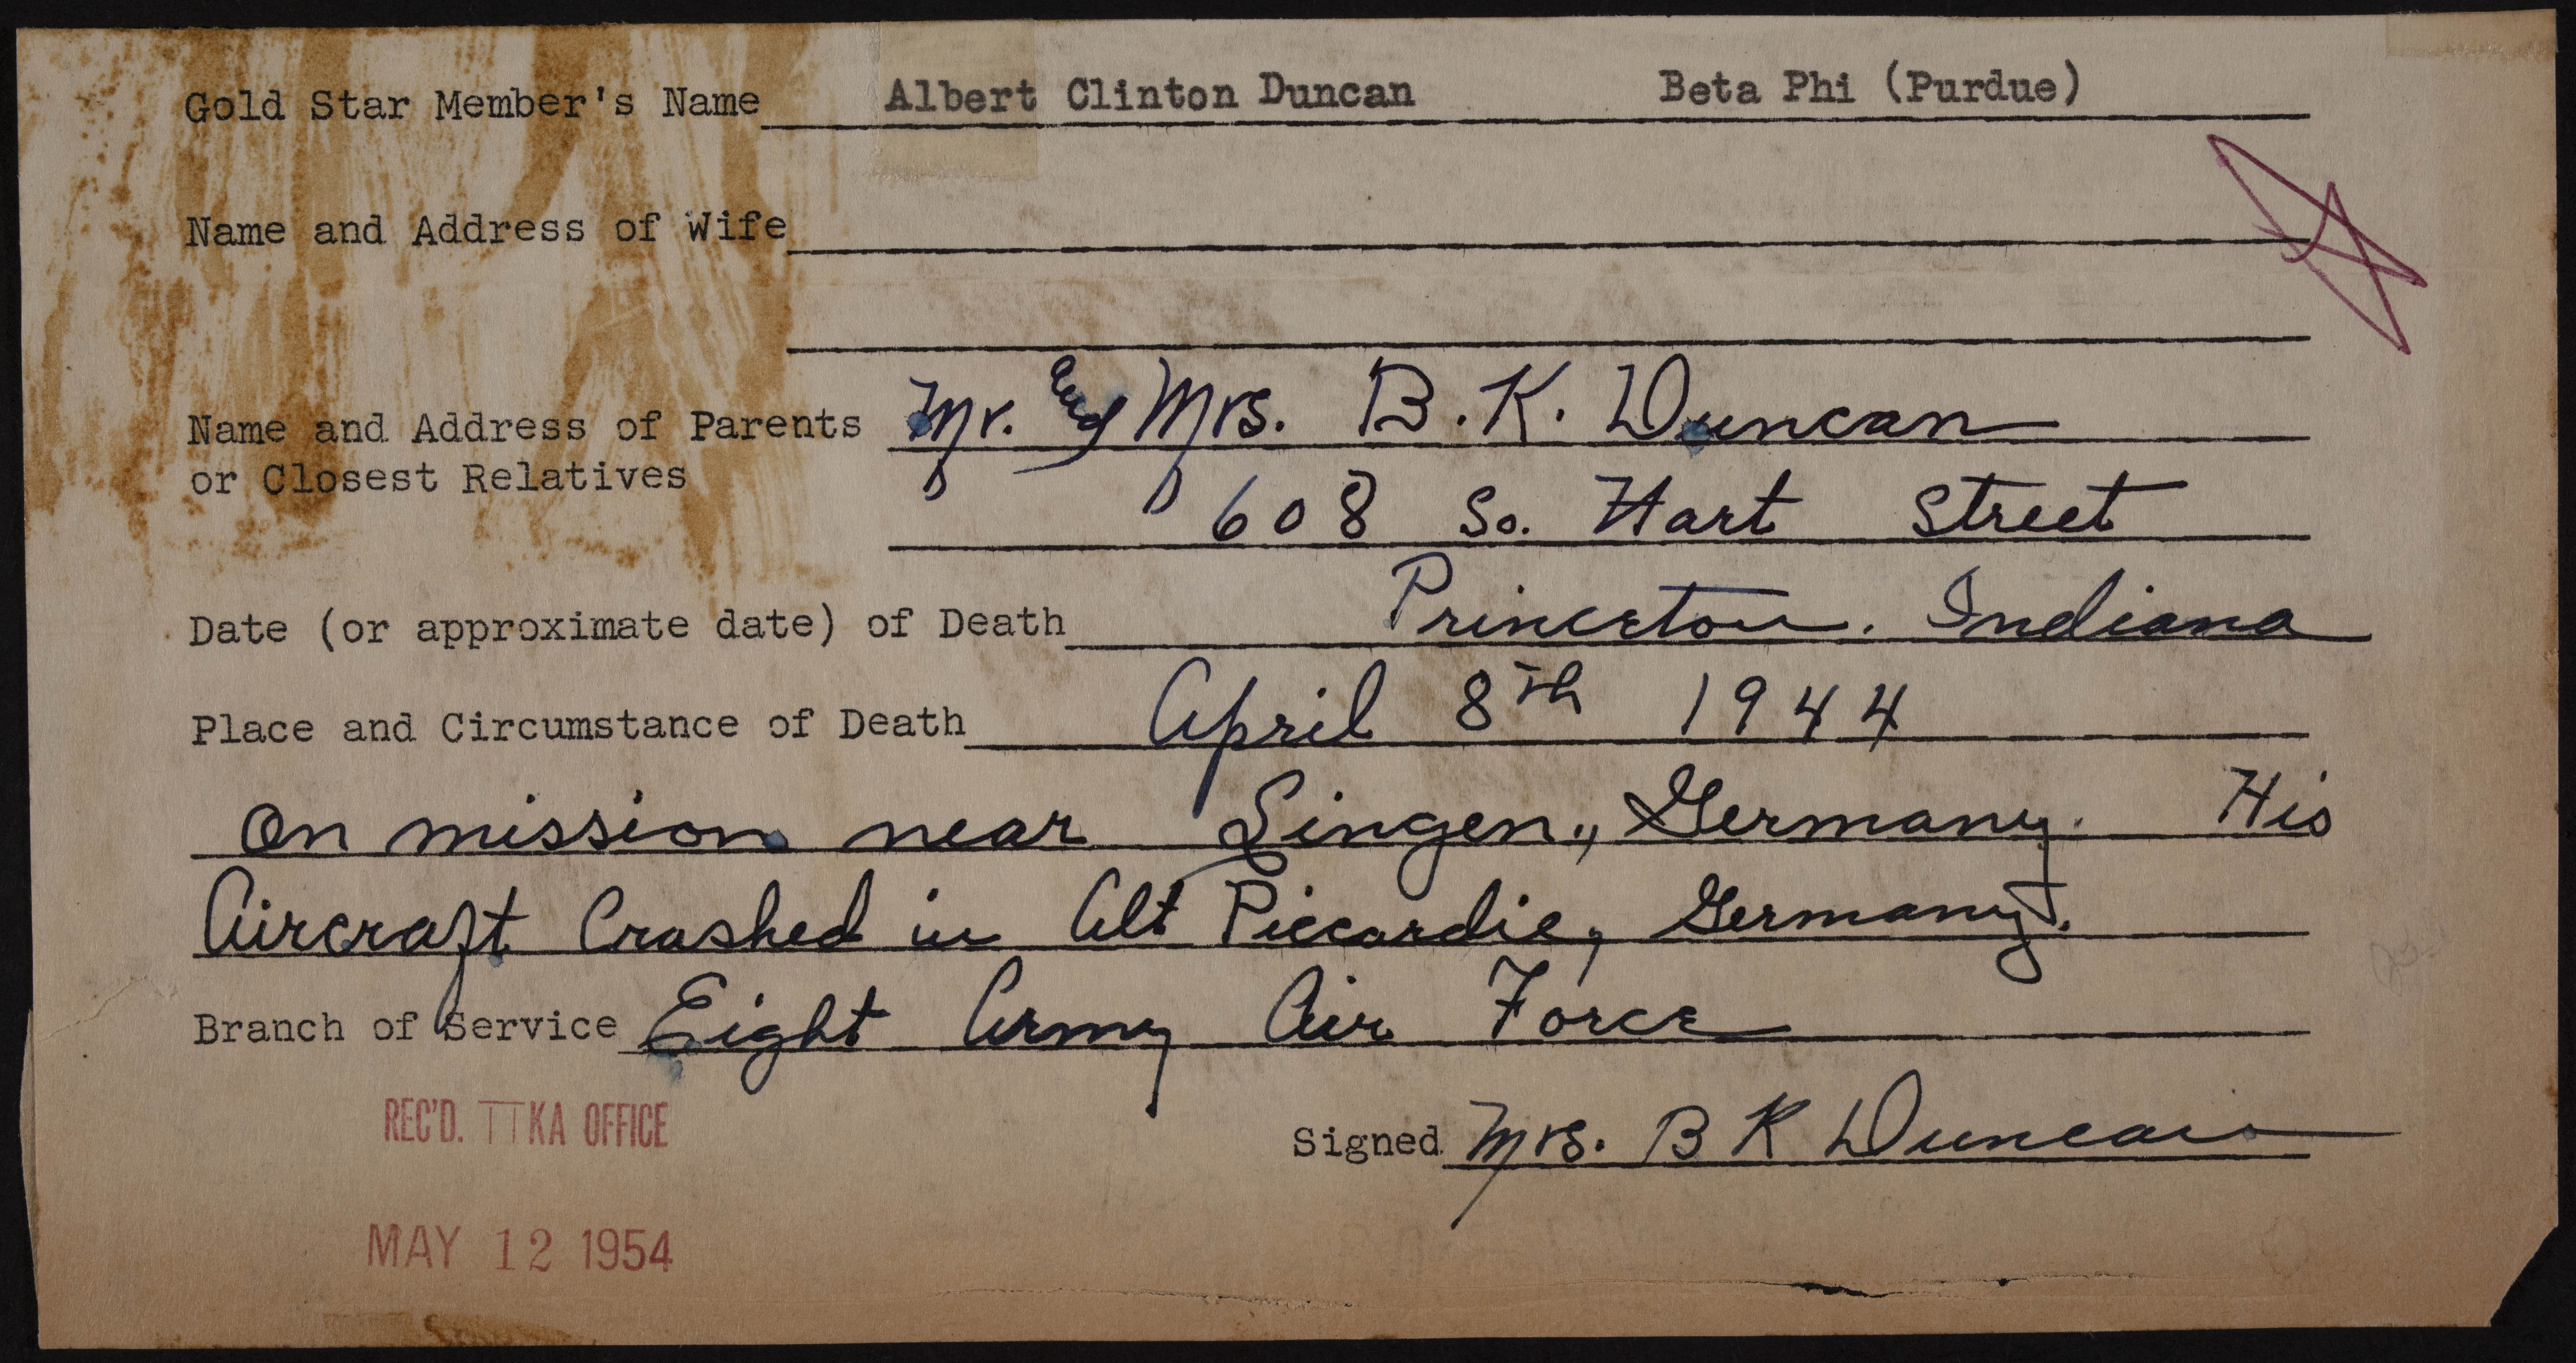 Gold Star Member's Name Albert Clinton Duncan Beta Phi (Purdue)
Name and Address of Wife
Name and Address of Parents Mr. and Mrs. B. K. Duncan
or Closest Relatives
608 So. Hart Street
Date (or approximate date) of Death Princeton. Indiana
Place and Circumstance of Death April 8th 1944
On mission near Lingen., Germany. His
Aircraft Crashed in Alt Piccardie, Germany.
Branch of Service Eight Army Air Force
REC'D. TTKA OFFICE
Signed Mrs. B K Duncan
MAY 12 1954